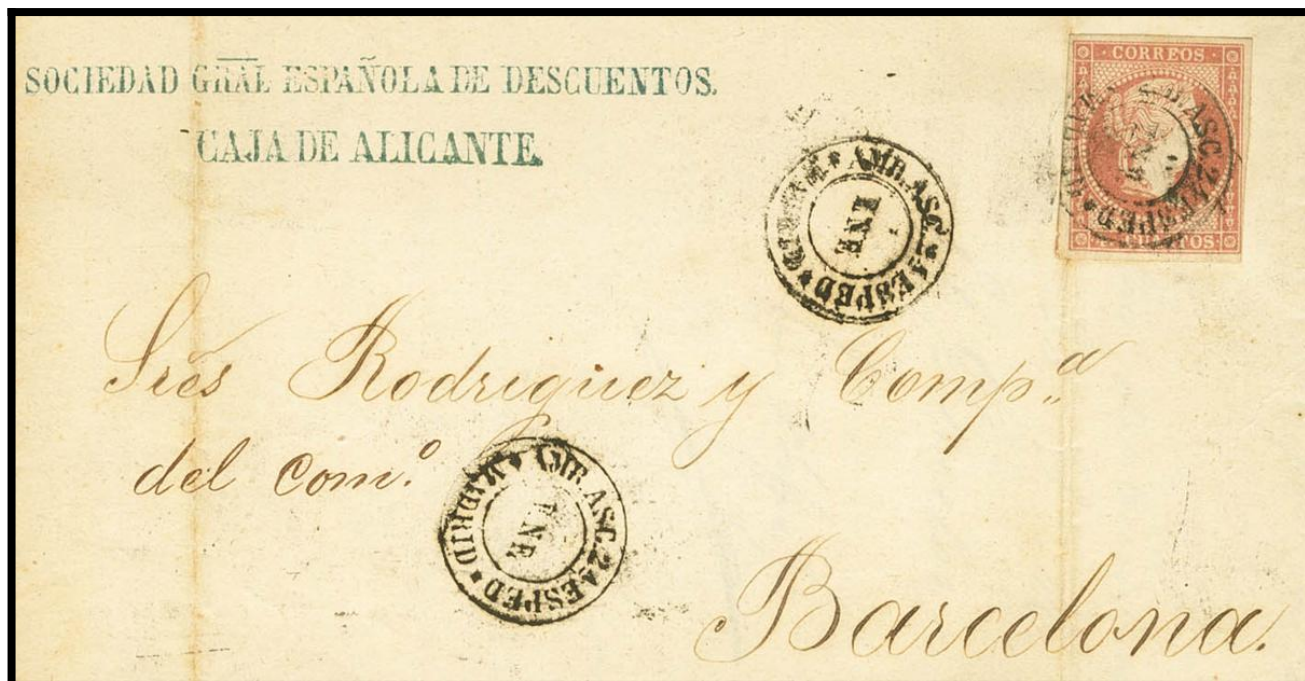 SOCIEDAD GRAL ESPAÑOLA DE DESCUENTOS.
CAJA DE ALICANTE.
CORREOS
AMB. ASC. 2A ESPED * MADRID *
ENE
AMB. ASC. 2A ESPED * MADRID *
ENE
Sres Rodriguez y Comp.a
del com.o
AMB. ASC. 2A ESPED * MADRID *
ENE
Barcelona.